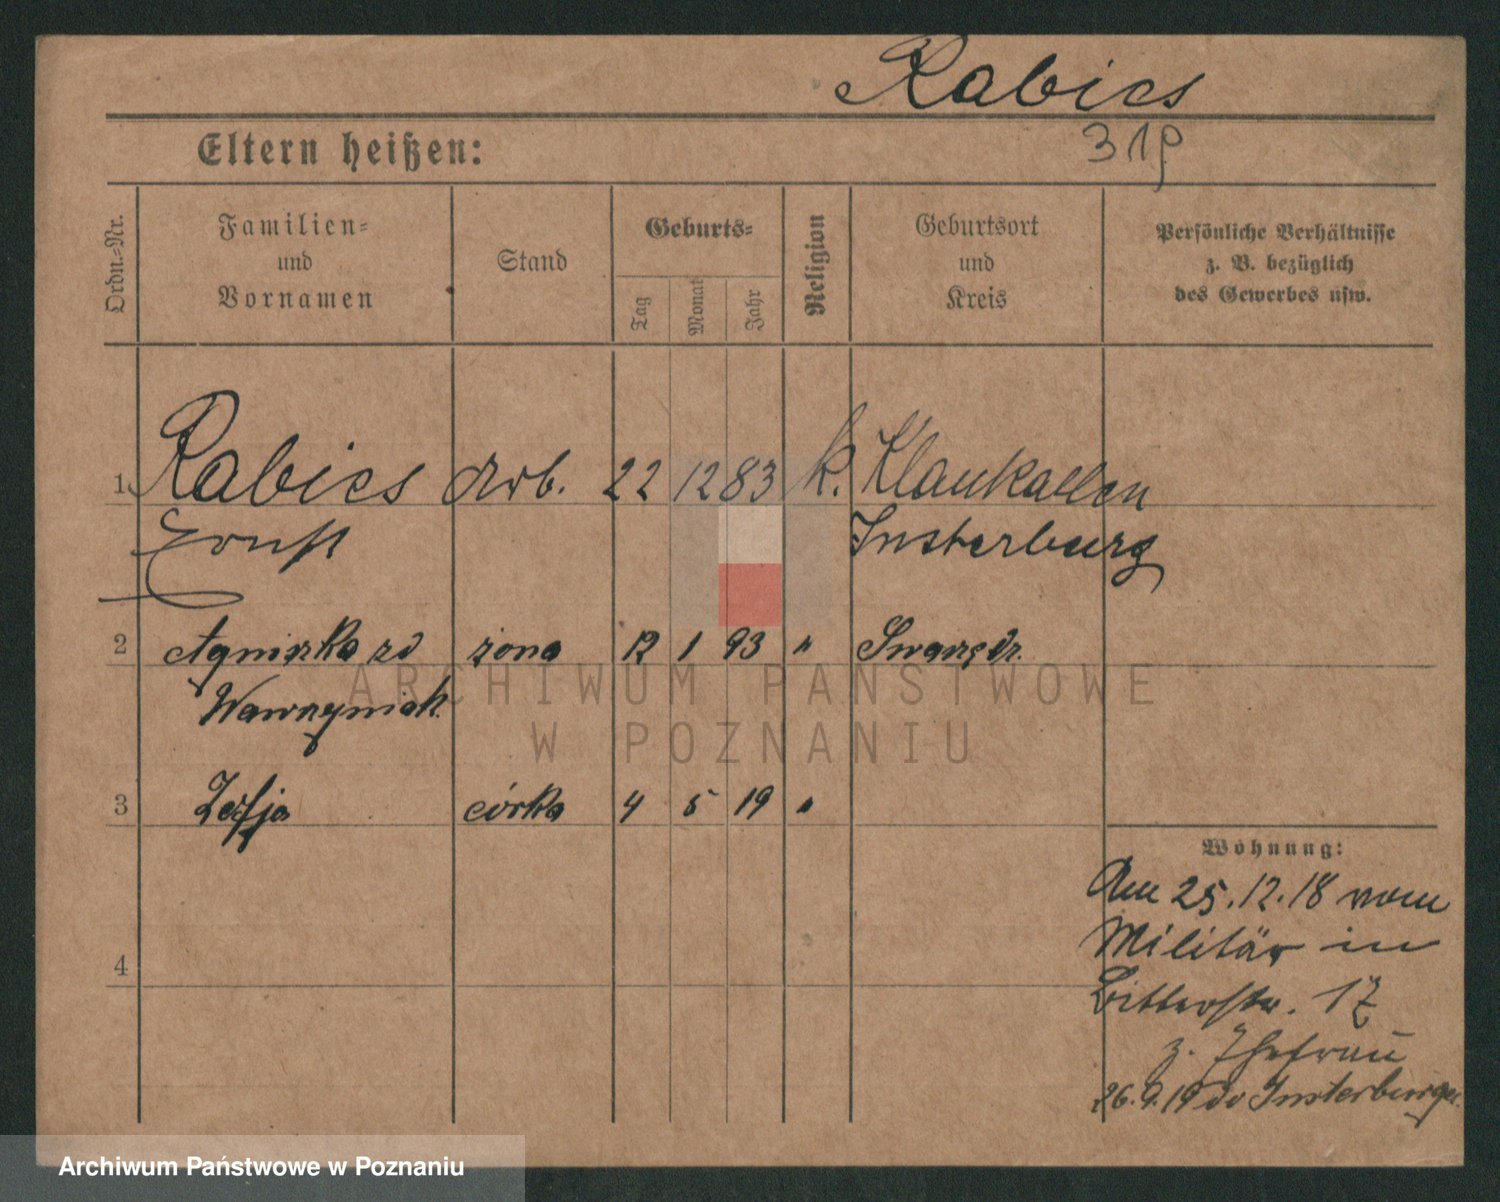 Rabies
319
Eltern heißen:
Ordn.-Nr.
Familien-
und
Vornamen
Stand
Geburts-
Tag
Monat
Jahr
Religion
Geburtsort
und
Kreis
Persönliche Verhältnisse
z. B. bezüglich
des Gewerbes usw.
1. Rabies Arb. 22 12 83 k. Klaukallen
Ernst Insterburg
2 Agniszka zd żona 12 1 93 " Swarzędz.
Wawrzyniak
3 Zofja córka 4 5 19 "
4
Wohnung:
Am 25.12.18 vom
Militär in
Bitterstr. 17
z. Ehefrau
26.9.19 do Insterburga.
ARCHIWUM PAŃSTWOWE
W POZNANIU
Archiwum Państwowe w Poznaniu